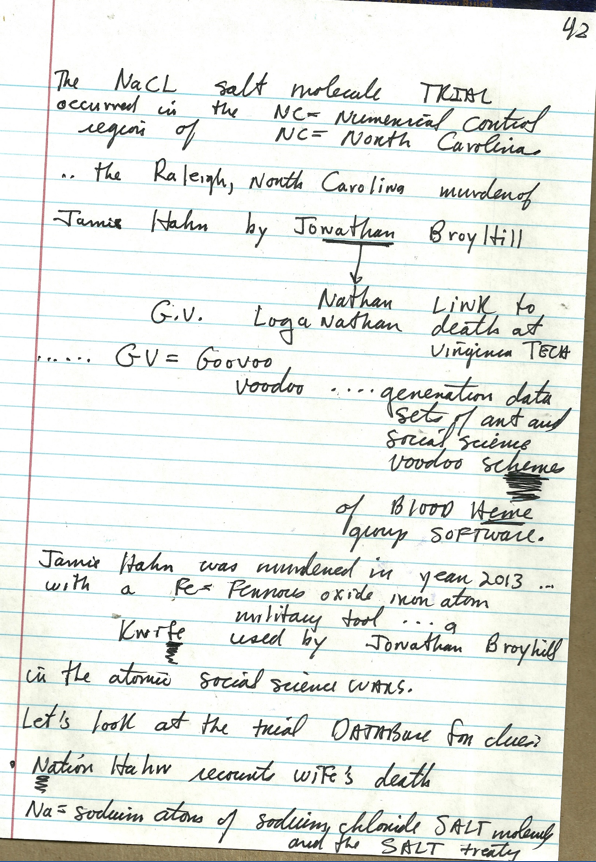 42
The NaCL salt molecule TRIAL
occurred in the NC= Numerical control
region of NC= North Carolina.
.. the Raleigh, North Carolina murder of
Jamie Hahn by Jonathan BroyHill
Nathan Link to
G.V. Loga Nathan death at
Virginia TECH
...... GV = Goovoo
voodoo .... generation data
sets of ant and
social science
voodoo schemes
of Blood Heme
group SOFTWARE.
Jamie Hahn was murdered in year 2013 ...
with a Fe= Ferrous oxide iron atom
military tool ... a
Knife used by Jonathan Broyhill
in the atomic social science WARS.
Let's look at the trial DATABase for clues:
. Nation Hahn recounts wife's death
Na= sodium atom of sodium chloride SALT molecule
and the SALT treaty